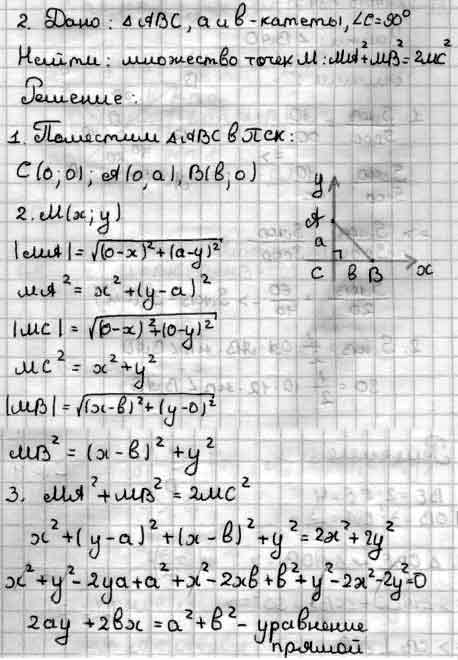 2. Дано: ΔABC, a и в - катеты, ∠C=90°
Найти: множество точек M: MA²+MB²=2MC²
Решение:
1. Поместим ΔABC в ПСК:
C(0;0); A(0,a), B(в;0)
2. M(x;y)
|MA|=√((0-x)²+(a-y)²)
MA²=x²+(y-a)²
|MC|=√((0-x)²+(0-y)²)
MC²=x²+y²
|MB|=√((x-в)²+(y-0)²)
MB²=(x-в)²+y²
y
A
a
C в B x
3. MA²+MB²=2MC²
x²+(y-a)²+(x-в)²+y²=2x²+2y²
x²+y²-2ya+a²+x²-2xв+в²+y²-2x²-2y²=0
2ay+2вx=a²+в² - уравнение
прямой